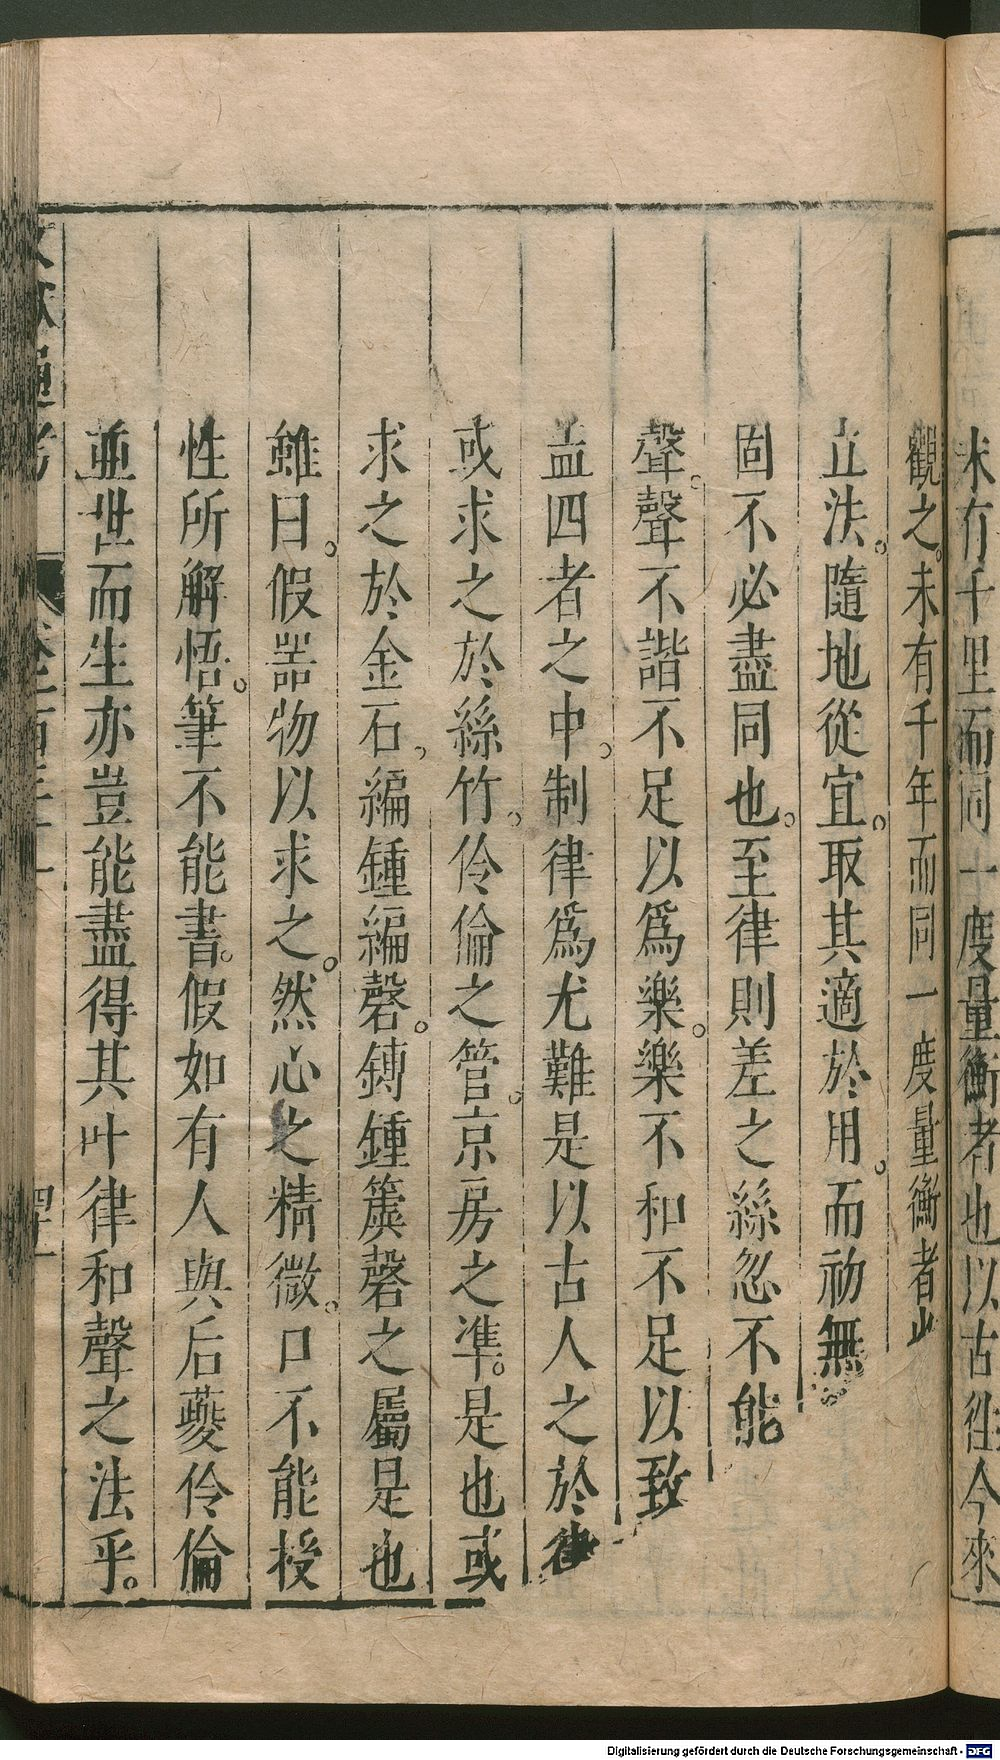 未有千里而同一度量衡者也以古徃今來
觀之。未有千年而同一度量衡者此
立法。隨地從宜。取其適於用。而初無
固不必盡同也。至律則差之絲忽不能
聲。聲不諧不足以爲樂。樂不和不足以致
盖四者之中。制律爲尤難是以古人之於律
或求之於絲竹。伶倫之管。京房之準。是也或
求之於金石，編鍾編磬。鎛鍾簴磬之屬是也
雖曰。假噐物以求之。然心之精微。口不能授
性所解悟。筆不能書。假如有人與后夔伶倫
並世而生亦豈能盡得其叶律和聲之法乎。
文獻通考
Digitalisierung gefördert durch die Deutsche Forschungsgemeinschaft - DFG